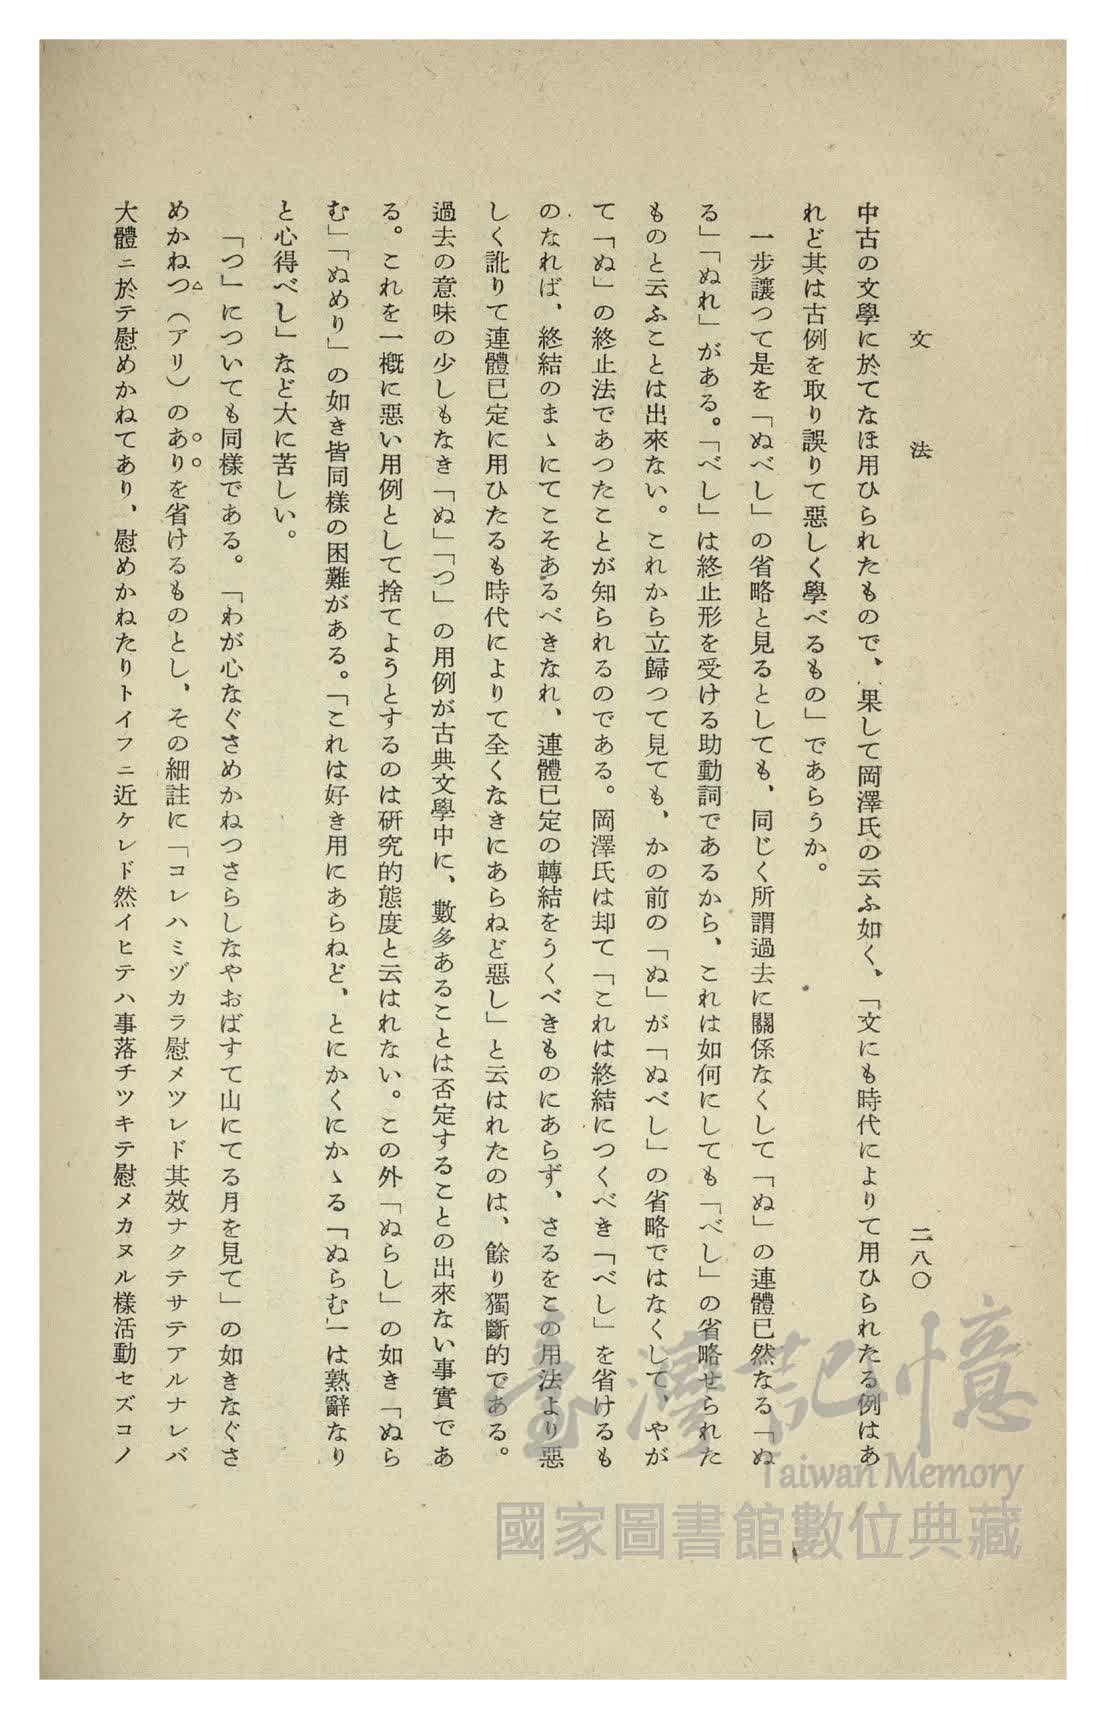 文法
二八〇
中古の文學に於てなほ用ひられたもので、果して岡澤氏の云ふ如く、「文にも時代によりて用ひられたる例はあ
れど其は古例を取り誤りて惡しく學べるもの」であらうか。
一步讓つて是を「ぬべし」の省略と見るとしても、同じく所謂過去に關係なくして「ぬ」の連體已然なる「ぬ
る」「ぬれ」がある。「べし」は終止形を受ける助動詞であるから、これは如何にしても「べし」の省略せられた
ものと云ふことは出來ない。これから立歸つて見ても、かの前の「ぬ」が「ぬべし」の省略ではなくして、やが
て「ぬ」の終止法であつたことが知られるのである。岡澤氏は却て「これは終結につくべき「べし」を省けるも
のなれば、終結のまゝにてこそあるべきなれ、連體已定の轉結をうくべきものにあらず、さるをこの用法より惡
しく訛りて連體已定に用ひたるも時代によりて全くなきにあらねど惡し」と云はれたのは、餘り獨斷的である。
過去の意味の少しもなき「ぬ」「つ」の用例が古典文學中に、數多あることは否定することの出來ない事實であ
る。これを一概に惡い用例として捨てようとするのは研究的態度と云はれない。この外「ぬらし」の如き「ぬら
む」「ぬめり」の如き皆同樣の困難がある。「これは好き用にあらねど、とにかくにかゝる「ぬらむ」は熟辭なり
と心得べし」など大に苦しい。
「つ」についても同樣である。「わが心なぐさめかねつさらしなやおばすて山にてる月を見て」の如きなぐさ
めかねつ（アリ）のありを省けるものとし、その細註に「コレハミヅカラ慰メツレド其效ナクテサテアルナレバ
大體ニ於テ慰めかねてあり、慰めかねたりトイフニ近ケレド然イヒテハ事落チツキテ慰メカヌル樣活動セズコノ
臺灣記憶
Taiwan Memory
國家圖書館數位典藏